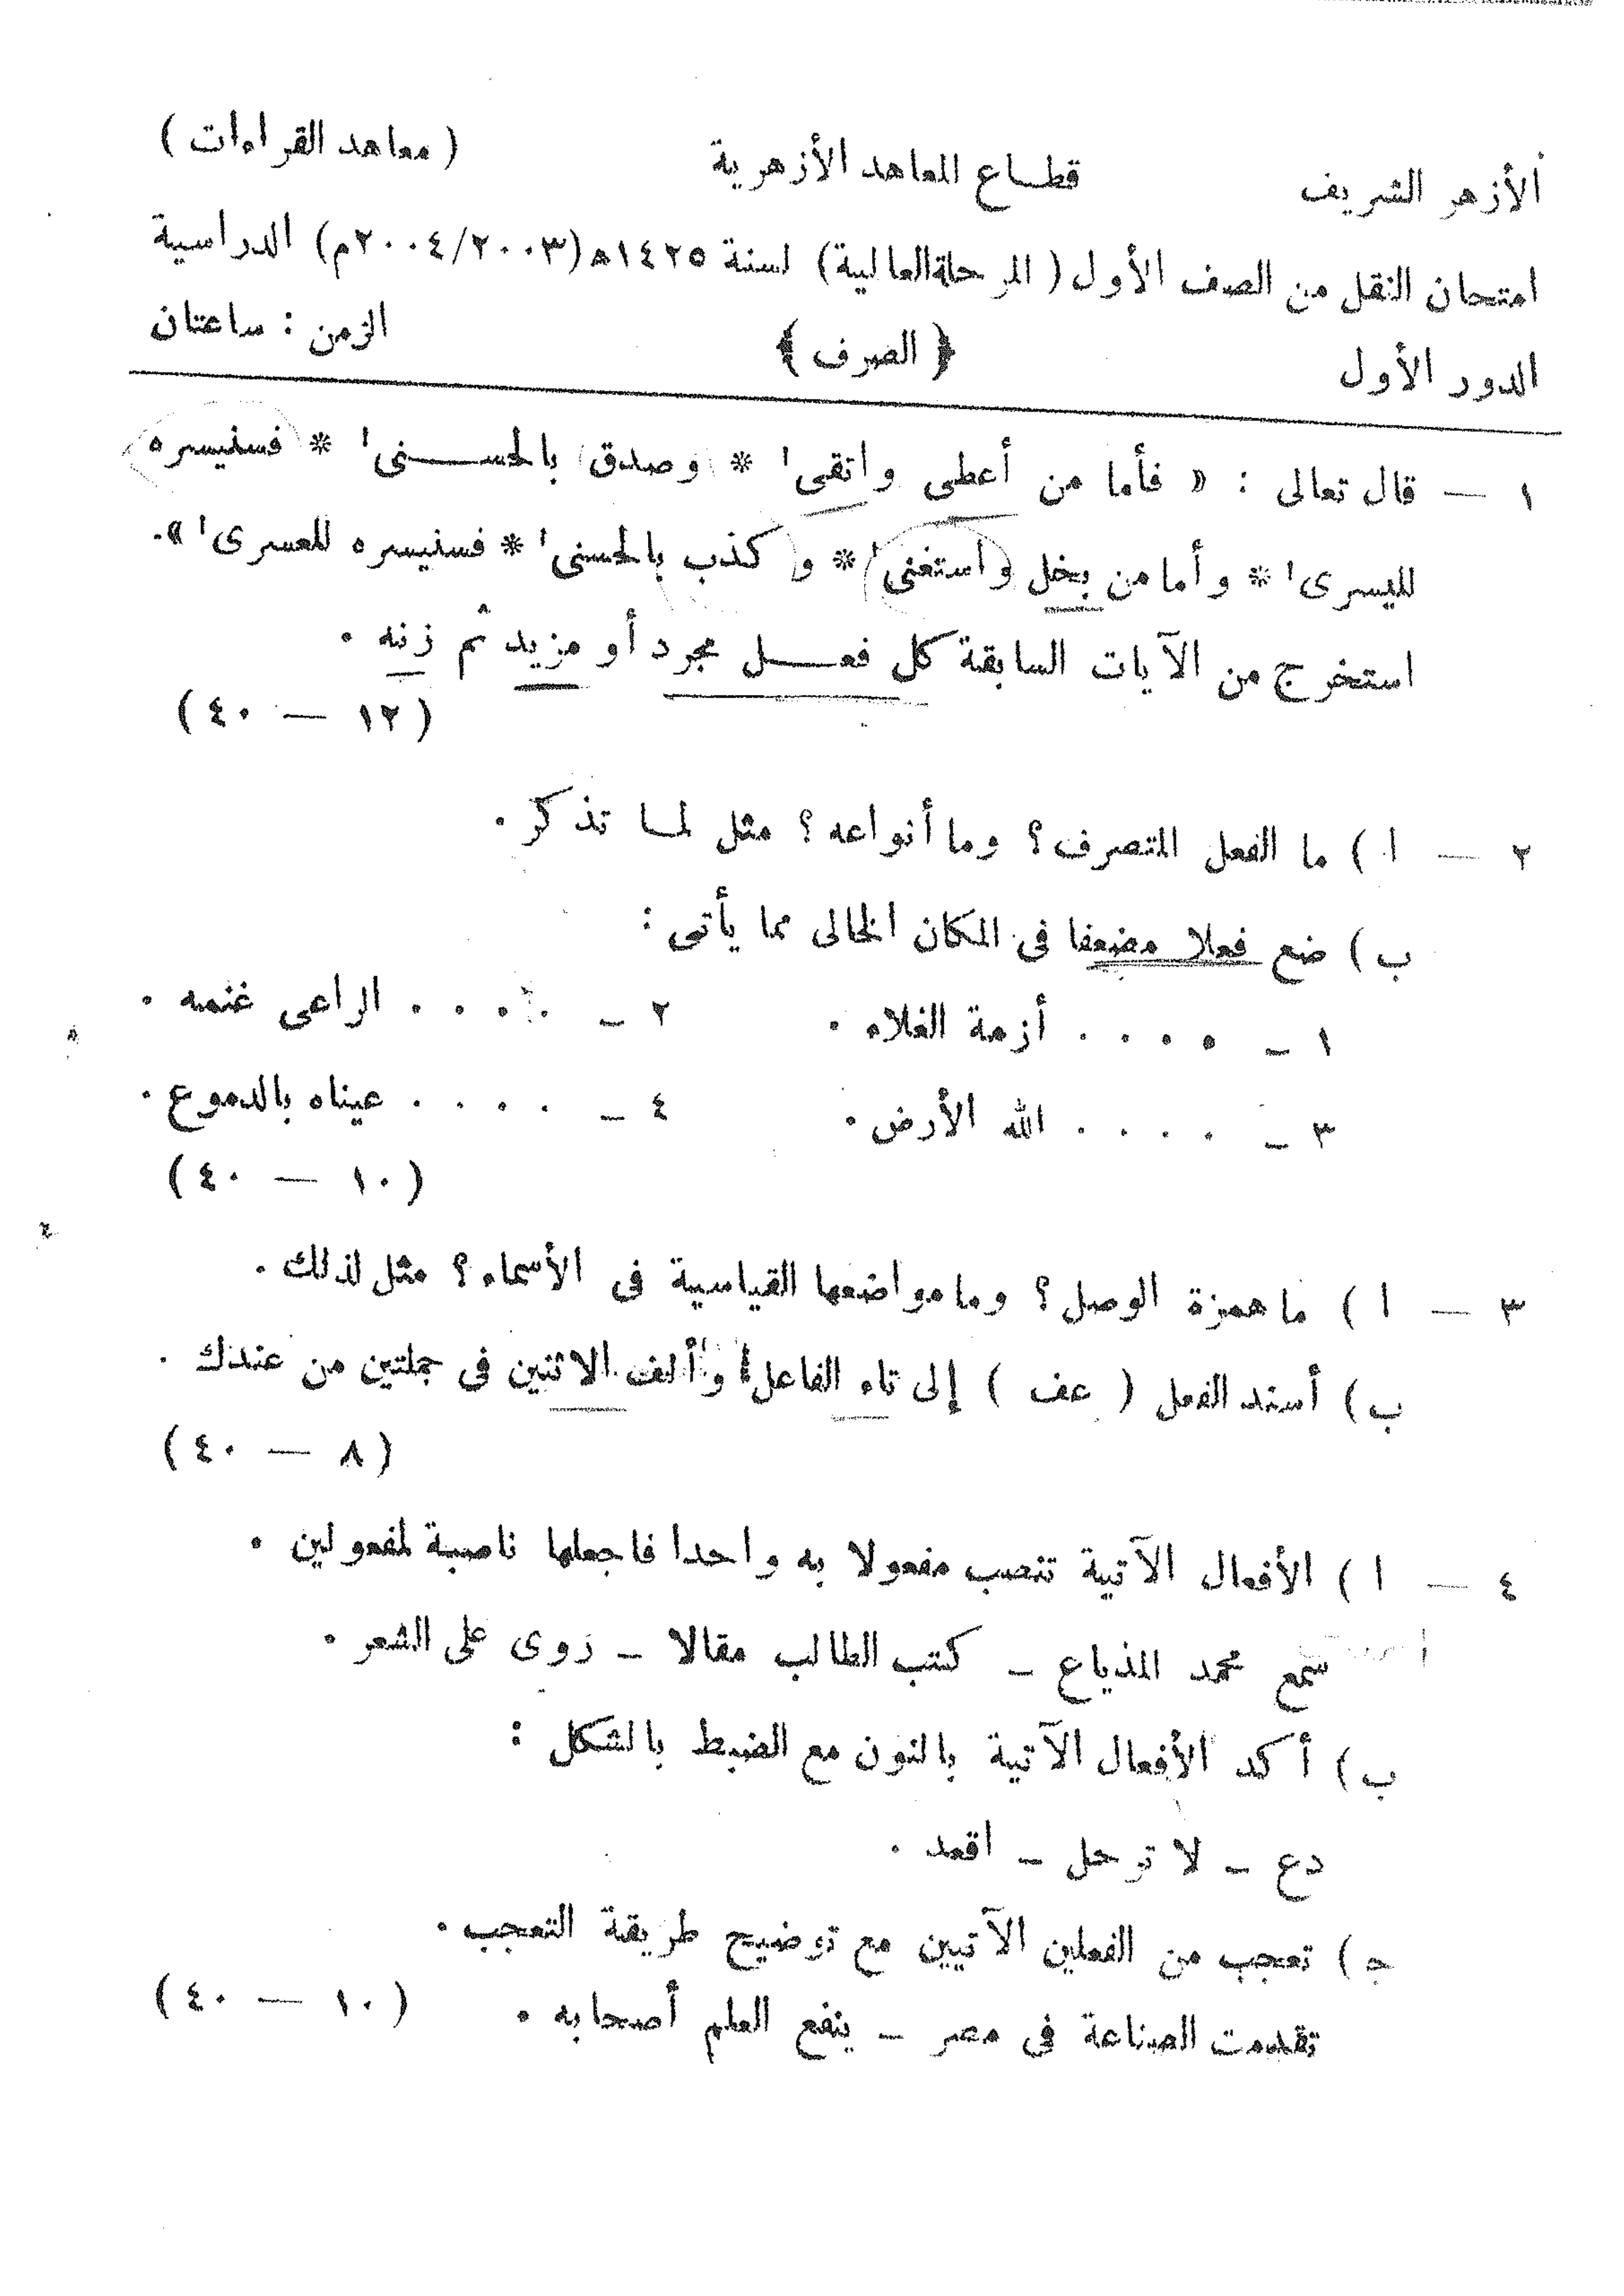 الأزهر الشريف قطاع المعاهد الأزهرية ( معاهد القراءات )
امتحان النقل من الصف الأول ( المرحلة العالية ) لسنة ١٤٢٥ه (٢٠٠٤/٢٠٠٣م) الدراسية
الدور الأول ﴿ الصرف ﴾ الزمن : ساعتان
١ — قال تعالى : « فأما من أعطى واتقى * وصدق بالحسنى * فسنيسره
لليسرى * وأما من بخل واستغنى * وكذب بالحسنى * فسنيسره للعسرى ».
استخرج من الآيات السابقة كل فعل مجرد أو مزيد ثم زنه .
( ١٢ — ٤٠ )
٢ — ا ) ما الفعل المتصرف ؟ وما أنواعه ؟ مثل لما تذكر .
ب ) ضع فعلا مضعفا فى المكان الخالى مما يأتى :
١ – . . . . أزمة الغلاء . ٢ – . . . . الراعى غنمه .
٣ – . . . . الله الأرض . ٤ – . . . . عيناه بالدموع .
( ١٠ — ٤٠ )
٣ — ا ) ما همزة الوصل ؟ وما مواضعها القياسية فى الأسماء ؟ مثل لذلك .
ب ) أسند الفعل ( عف ) إلى تاء الفاعل وألف الاثنين فى جملتين من عندك .
( ٨ — ٤٠ )
٤ — ا ) الأفعال الآتية تنصب مفعولا به واحدا فاجعلها ناصبة لمفعولين .
سمع محمد المذياع – كتب الطالب مقالا – روى على الشعر .
ب ) أكد الأفعال الآتية بالنون مع الضبط بالشكل :
دع – لا ترحل – اقعد .
ج ) تعجب من الفعلين الآتيين مع توضيح طريقة التعجب .
تقدمت الصناعة فى مصر – ينفع العلم أصحابه . ( ١٠ — ٤٠ )